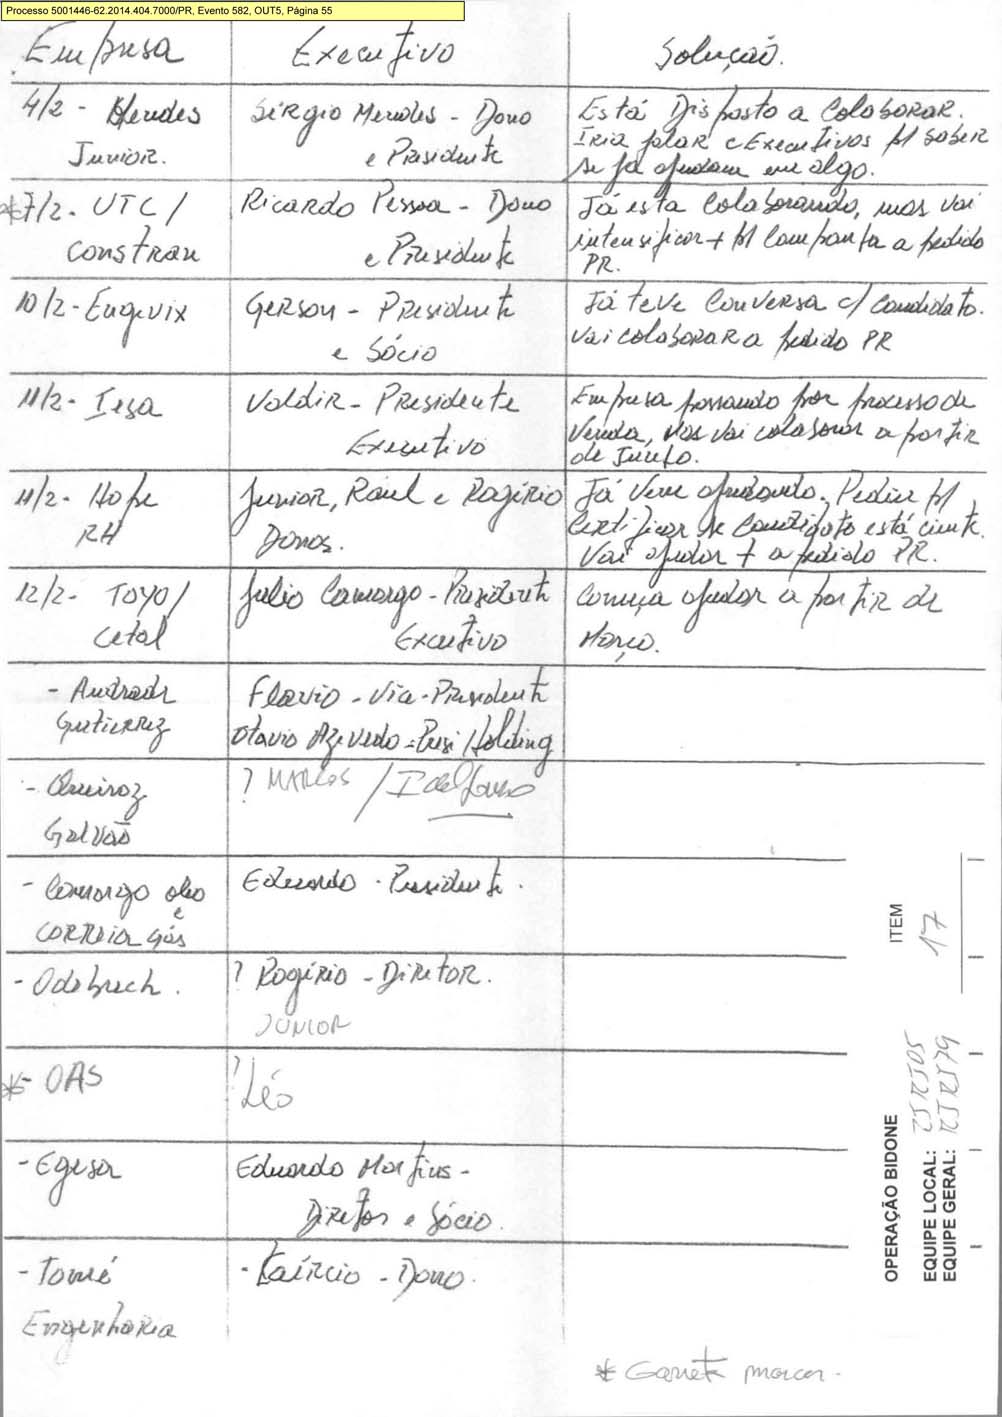 Processo 5001446-62.2014.404.7000/PR, Evento 582, OUT5, Página 55
Empresa Executivo Solução.
4/2 - Mendes Sérgio Mendes - Dono Está Disposto a Colaborar.
Junior. e Presidente Iria falar c Executivos p/ saber
se já ajudam em algo.
*7/2 - UTC / Ricardo Pessoa - Dono Já esta Colaborando, mas vai
Constran e Presidente intensificar + p/ Campanha a pedido
PR.
10/2 - Engevix Gerson - Presidente Já teve Conversa c/ Candidato.
e Sócio Vai colaborar a pedido PR
11/2 - Iesa Valdir - Presidente Empresa passando por processo de
Executivo Venda, mas vai colaborar a partir
de Junho.
11/2 - Hope Junior, Raul e Rogério Já Vem ajudando. Pediu p/
RH Donos. Certificar se Candidato está ciente.
Vai ajudar + a pedido PR.
12/2 - TOYO / Julio Camargo - Presidente Começa ajudar a partir de
Cetal Executivo Março.
- Andrade Flavio - Vice-Presidente
Gutierrez Otavio Azevedo - Presi Holding
- Queiroz ? MARCOS / Idelfonso
Galvão
- Camargo oleo Eduardo - Presidente.
e
CORREIA gás
- Odebrech. ? Rogério - Diretor.
JUNIOR
*- OAS ? Léo
- Egesa Eduardo Martins -
Diretor e Sócio.
- Tomé - Laércio - Dono.
Engenharia
* Gareta marcar -
OPERAÇÃO BIDONE ITEM 17
EQUIPE LOCAL:
EQUIPE GERAL: